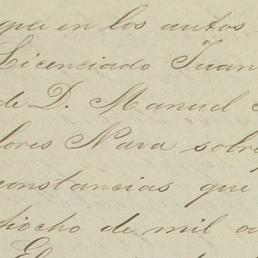 que en los autos
Licenciado Juan
de D. Manuel
lores Nava sobre
constancias que
diocho de mil oc
El